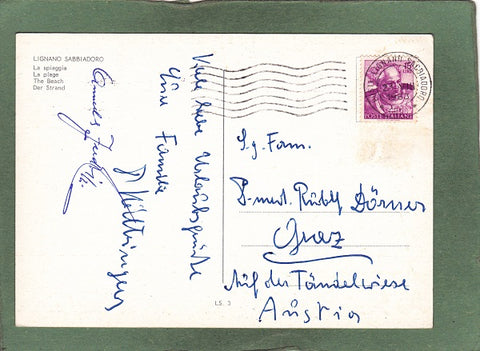 LIGNANO SABBIADORO
La spiaggia
La plage
The Beach
Der Strand
Viele liebe Urlaubsgrüße
Ihre Familie
LIGNANO SABBIADORO
POSTE ITALIANE
Sg. Fam.
Dr. med. Rudolf Dörner
Graz
Auf der Tändelwiese
Austria
LS. 3